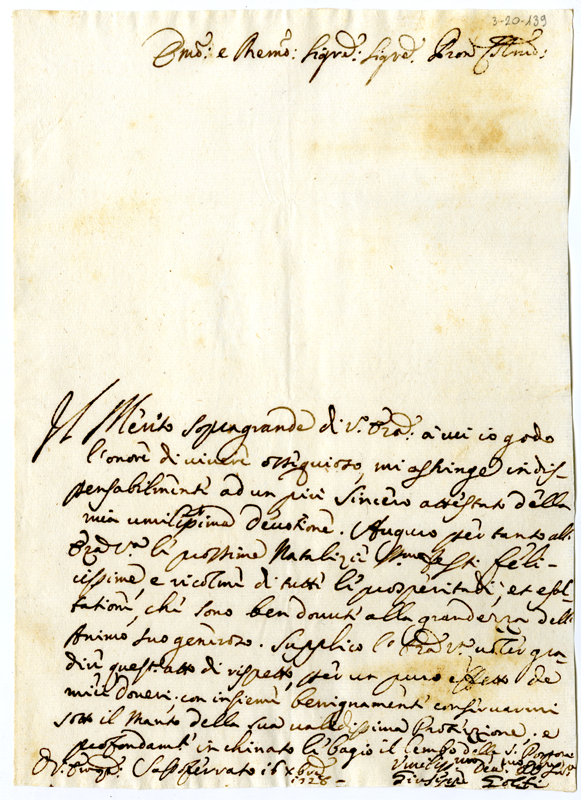 3-20-139
Emo: e Remo: Sigre: Sigre: Pron
Il Merito sopragrande di V. Era: à cui io godo
l'onore di vivere ossequioso, mi astringe indis-
pensabilmente ad un più sincero attestato della
mia umilissima devotione. Auguro per tanto all
Era Va. le prossime Natalizie Feste feli-
cissime, e ricolme di tutte le prosperità, et esal-
tationi, che sono ben dovute alla grandezza dell
Animo suo generoso. Supplico l' Era Va. voler gra-
dire quest'atto di rispetto, per un puro effetto de
miei doveri, con insieme benignamente conservarmi
sotto il Manto della sua validissima Protezzione, e
profondamte inchinato le bagio il lembo della S. Porpora
Sassoferrato 16 Xbre 1728
Giuseppe